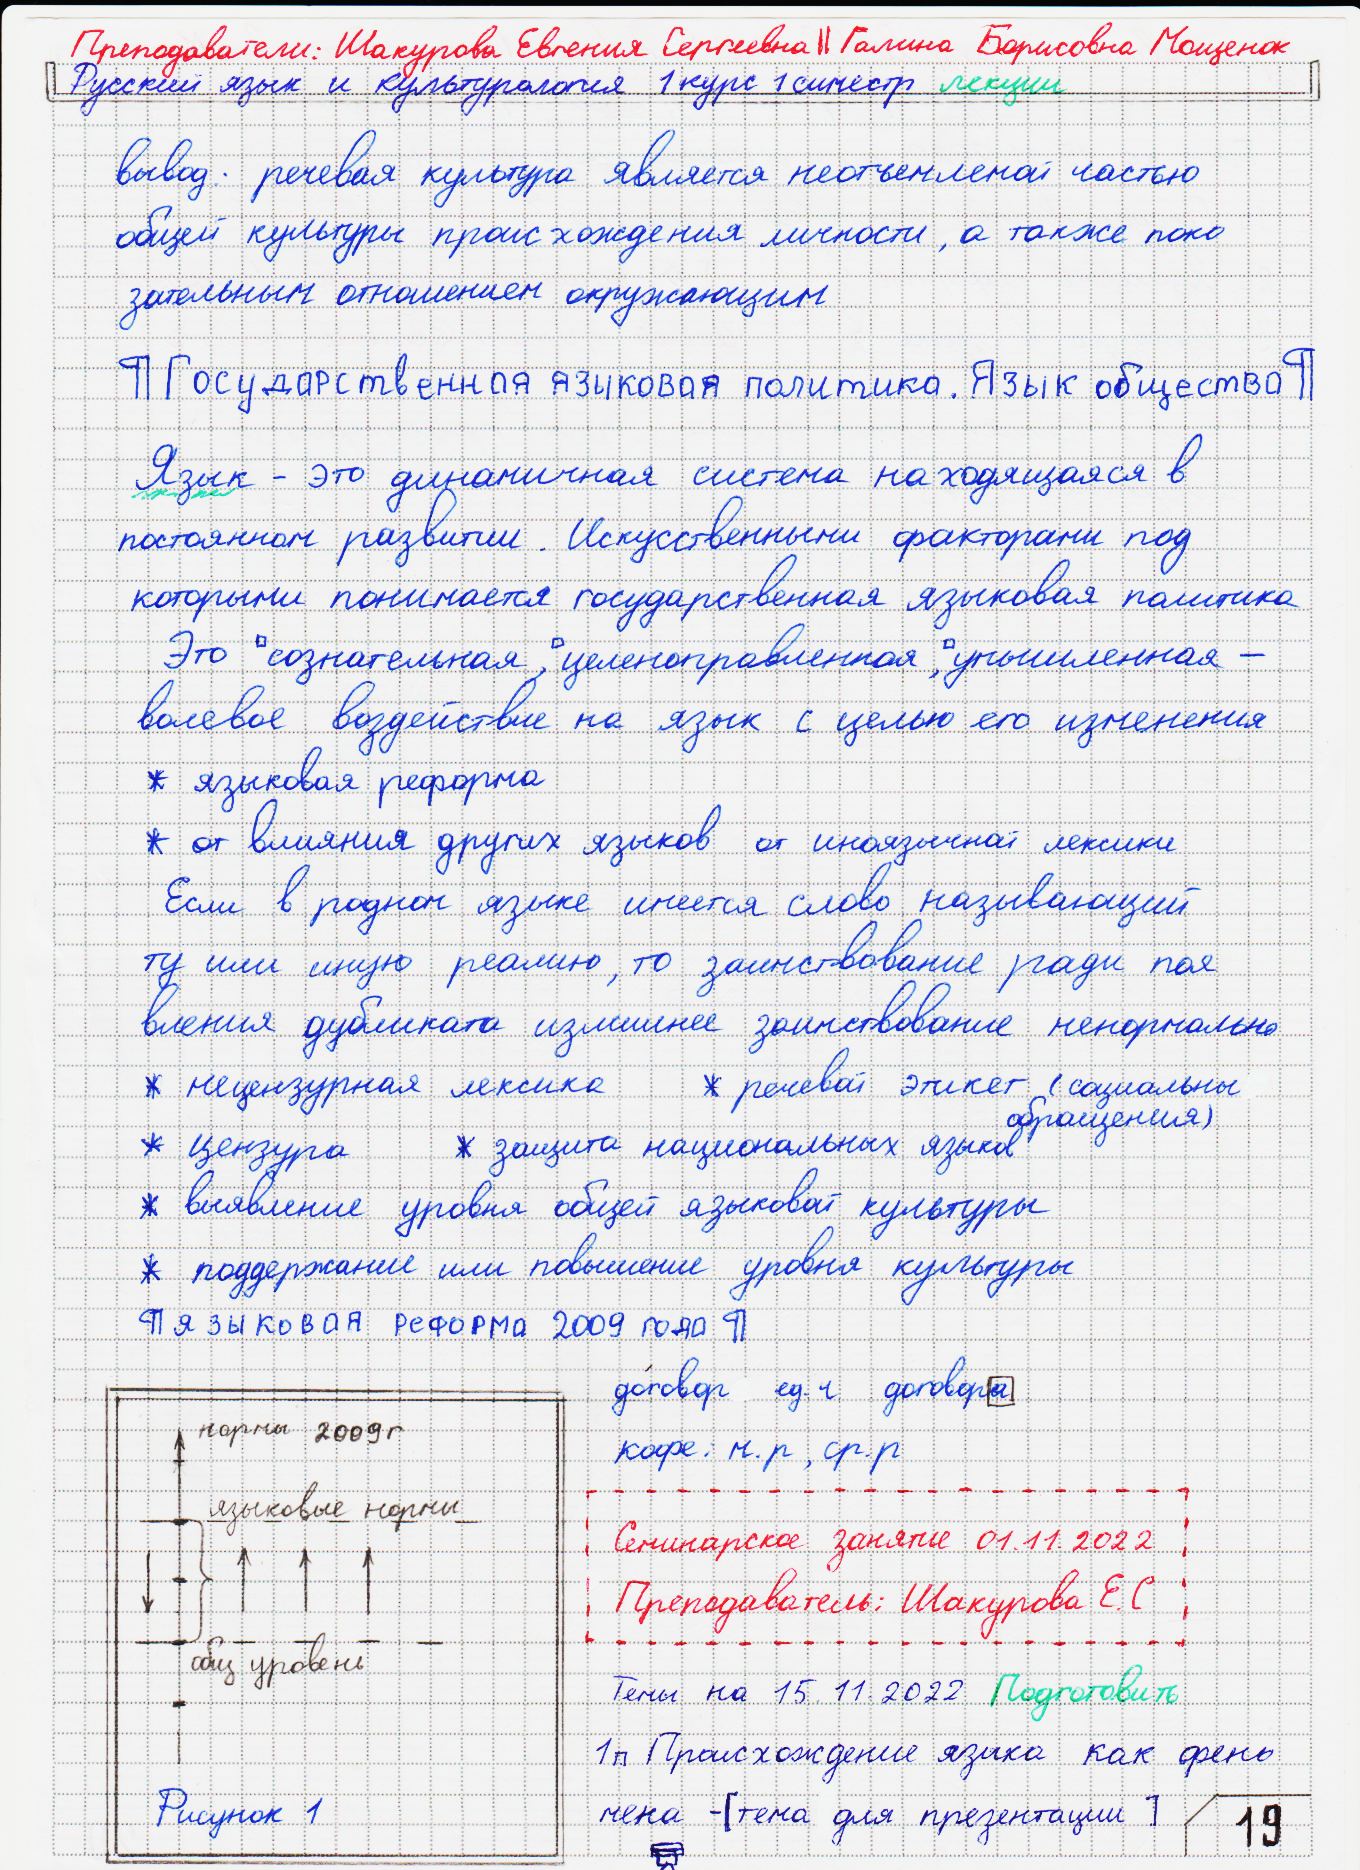 Преподаватели: Шакурова Евгения Сергеевна || Галина Борисовна Мощенок
Русский язык и культурология 1 курс 1 синестр лекции
вывод: речевая культура является неотъемлемой частью
общей культуры происхождения личности, а также пока
зательным отношением окружающим
¶ Государственная языковая политика. Язык общества ¶
Язык - это динамичная система находящаяся в
постоянном развитии. Искусственными факторами под
которыми понимается государственная языковая политика
Это сознательная, целенаправленная, умышленная —
волевое воздействие на язык с целью его изменения
* языковая реформа
* от влияния других языков от иноязычной лексики
Если в родном языке имеется слово называющий
ту или иную реалию, то заинствование ради поя
вления дубликата излишнее заинствование ненормально
* нецензурная лексика * речевой этикет (социальны
обращения)
* цензура * защита национальных языков
* выявление уровня общей языковой культуры
* поддержание или повышение уровня культуры
¶ языковая реформа 2009 года ¶
до́говор ед.ч договора
кофе: м.р, ср.р
нормы 2009г
языковые нормы
общ уровень
Рисунок 1
Семинарское занятие 01.11.2022
Преподаватель: Шакурова Е.С
Темы на 15.11.2022 Подготовить
1п Происхождение языка как фено
мена -[тема для презентации]
19